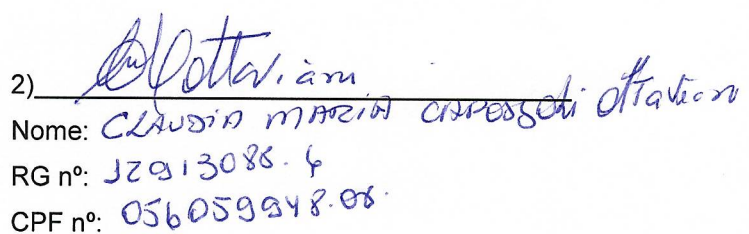 2) Ottaviani
Nome: CLAUDIA MARIA Ottaviani
RG nº: 12913088.4
CPF nº: 056059948.08